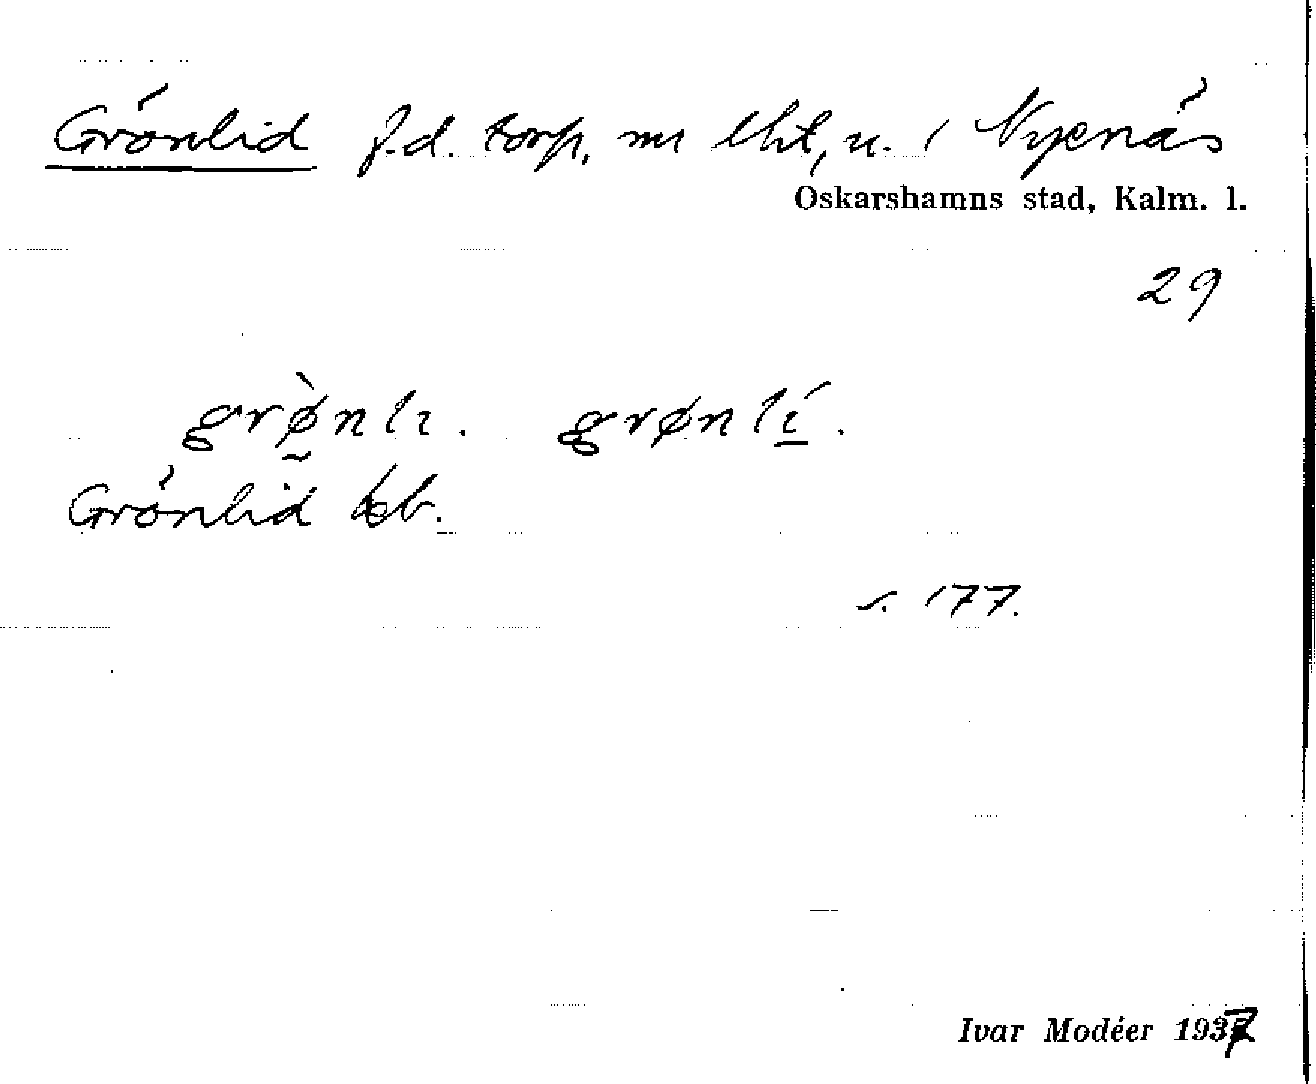 Grönlid f.d. torp, nu lht, u. / Nyenäs
Oskarshamns stad, Kalm. l.
29
grø̀nlı. grønlı́.
Grönlid kb.
s. 177.
Ivar Modéer 1937